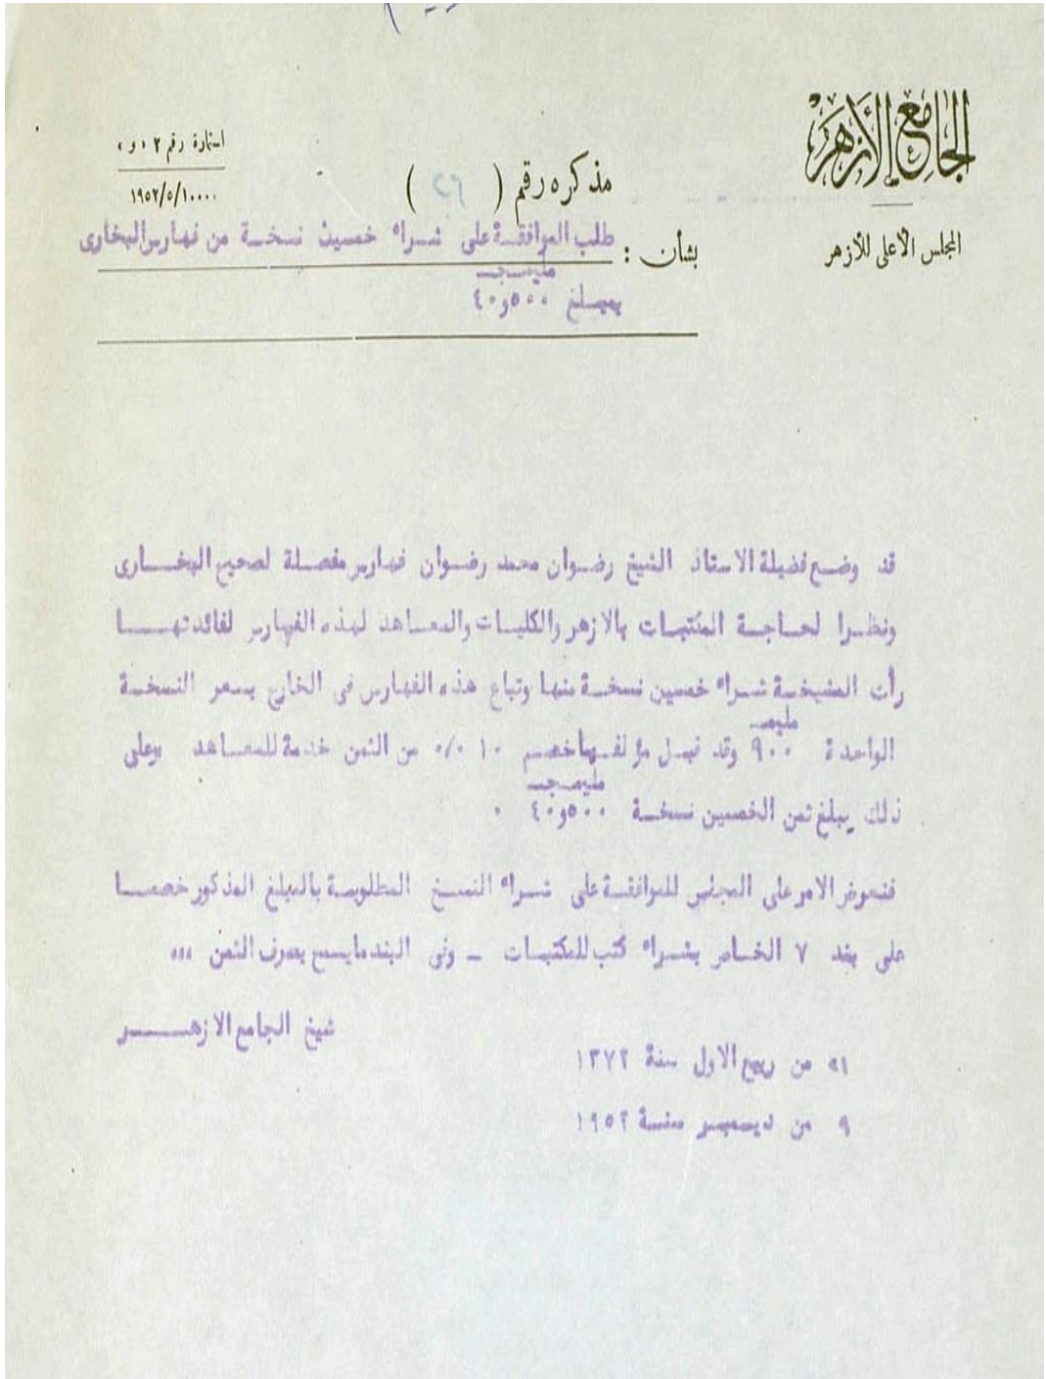 الجامع الأزهر
المجلس الأعلى للأزهر
استمارة رقم ٢ «و»
١٩٥٢/٥/١٠٠٠٠
مذكره رقم ( ٢٦ )
بشأن : طلب الموافقة على شراء خمسين نسخة من فهارس البخارى
مليم جـ
بمبلغ ٥٠٠و٤٠
قد وضع فضيلة الاستاذ الشيخ رضوان محمد رضوان فهارس مفصلة لصحيح البخارى
ونظرا لحاجة المكتبات بالازهر والكليات والمعاهد لهذه الفهارس لفائدتها
رأت المشيخة شراء خمسين نسخة منها وتباع هذه الفهارس فى الخارج بسعر النسخة
مليم
الواحدة ٩٠٠ وقد قبل مؤلفها خصم ١٠ ٠/٠ من الثمن خدمة للمعاهد وعلى
مليم جـ
ذلك يبلغ ثمن الخمسين نسخة ٥٠٠و٤٠ ٠
فنعرض الامر على المجلس للموافقة على شراء النسخ المطلوبة بالمبلغ المذكور خصما
على بند ٧ الخاص بشراء كتب للمكتبات ـ وفى البند مايسمح بصرف الثمن ٠٠٠
شيخ الجامع الازهر
من ربيع الاول سنة ١٣٧٢
٩ من ديسمبر سنة ١٩٥٢